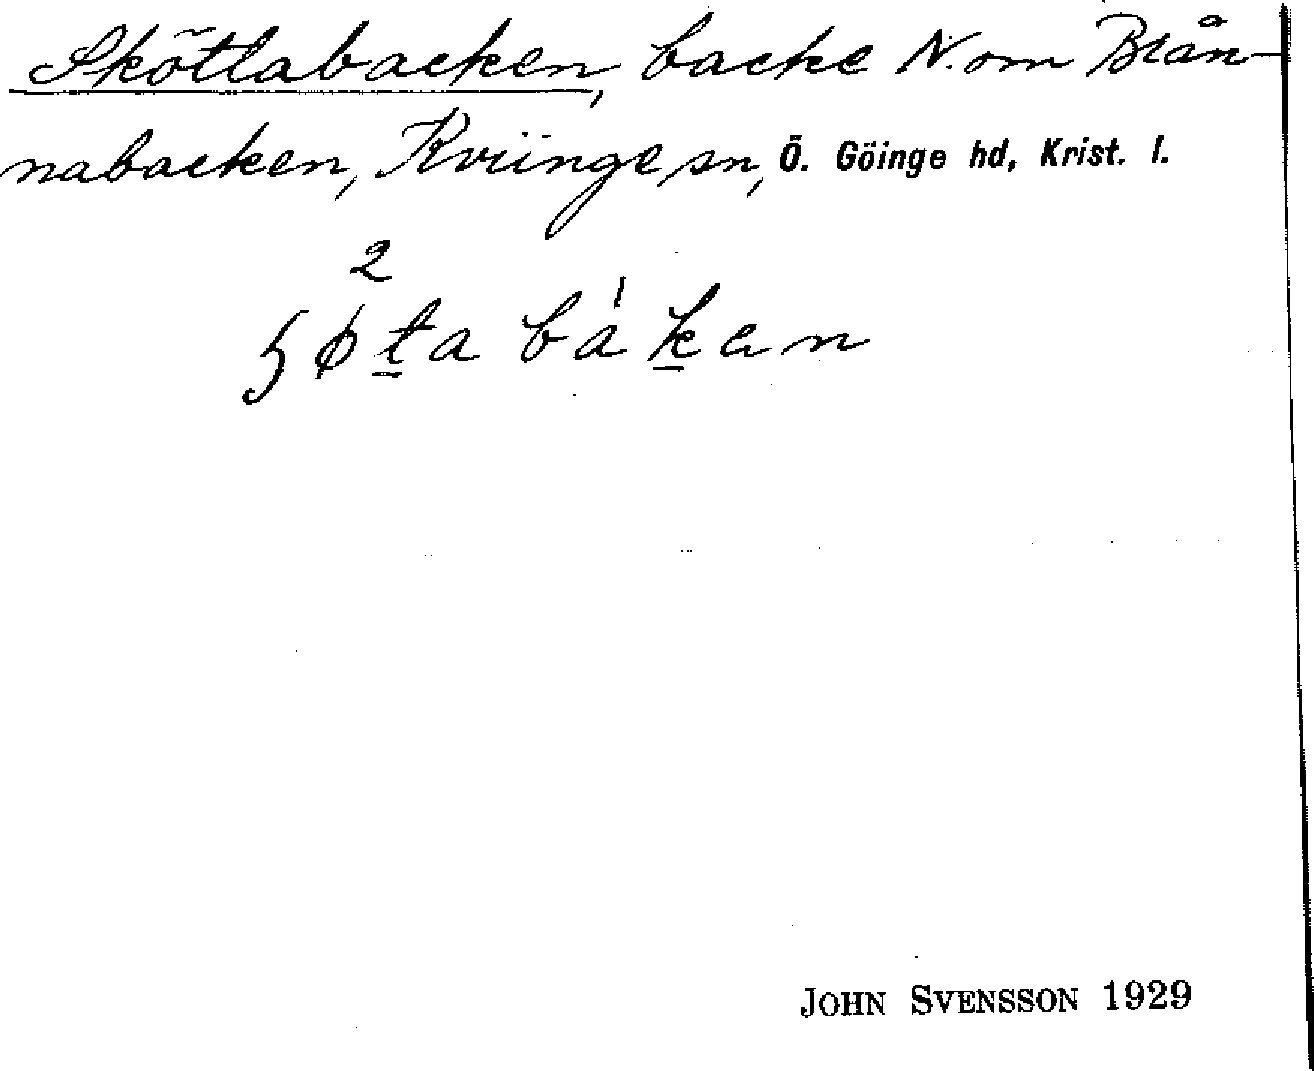 Sköttabacken, backe N. om Brån-
nabacken, Kviinge sn, Ö. Göinge hd, Krist. l.
2
ɧøta bakan
JOHN SVENSSON 1929